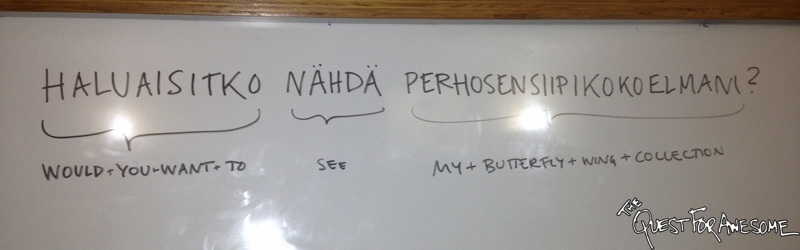 HALUAISITKO NÄHDÄ PERHOSENSIIPIKOKOELMANI?
WOULD+YOU+WANT+TO SEE MY+BUTTERFLY+WING+COLLECTION
THE
QUEST FOR AWESOME